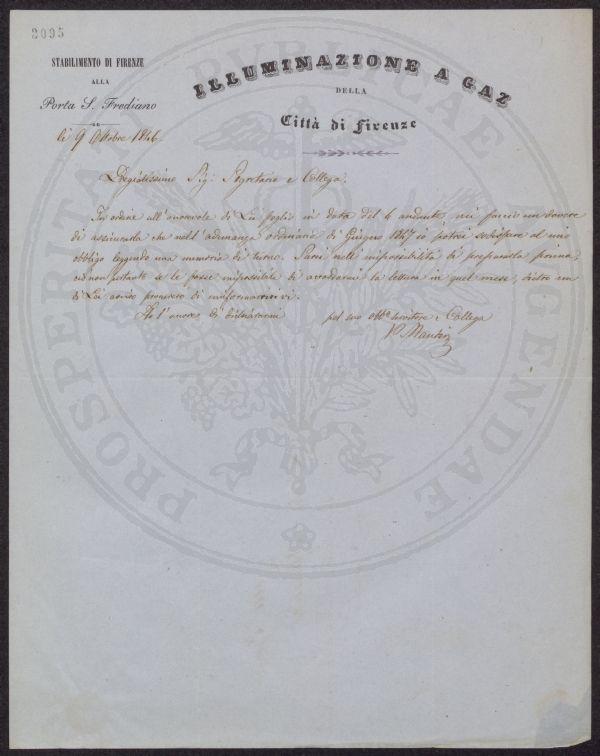 3095
STABILIMENTO DI FIRENZE
ALLA
Porta S. Frediano
ILLUMINAZIONE A GAZ
DELLA
Città di Firenze
li 9 Ottobre 1846
Pregiatissimo Sig. Segretario e Collega.
In ordine all'onorevole di Lei foglio in data del 6 andante, mi faccio un dovere
di assicurarla che nell'adunanza ordinaria di Giugno 1847 io potrò sodisfare al mio
obbligo leggendo una memoria di turno. Sarei nella impossibilità di prepararla prima,
ciò non ostante se le fosse impossibile di accordarmi la lettura in quel mese, dietro un
di Lei avviso procurerò di uniformarmivi.
Ho l'onore di dichiararmi
pel suo Obb.o servitore e Collega
PROSPERITATI PUBLICAE AUGENDAE